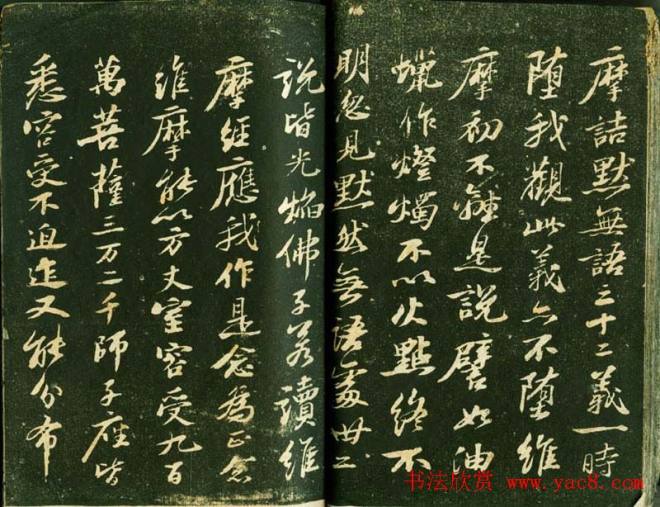 摩詰默無語三十二義一時
堕我觀此義亦不堕維
摩初不離是說譬如油
蠟作燈燭不以火點終不
明忽見默然無語處卅二
說皆光焰佛子若讀維
摩經應我作是念為正念
維摩能以方丈室容受九百
萬菩薩三万二千師子座皆
悉容受不迫迮又能分布
书法欣赏 www.yac8.com